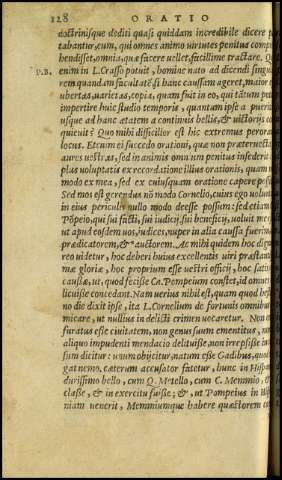 128 ORATIO
doctrinisque dediti quasi quiddam incredibile dicere p
tabantur, eum, qui omnes animo uirtutes penitus comp
hendisset, omnia, quæ facere uellet, facillime tractare. Q
P.B. enim in L. Crasso potuit, homine nato ad dicendi singul
rem quandam facultatē, si hanc caussam ageret, maior
ubertas, uarietas, copia, quam fuit in eo, qui tātum po
impertire huic studio temporis, quantum ipse a pueri
usque ad hanc ætatem a continuis bellis, & uictorijs co
quieuit? Quo mihi difficilior est hic extremus perora
locus. Etenim ei succedo orationi, quæ non præteruect
aures uestras, sed in animis omnium penitus insederit
plus uoluptatis ex recordatione illius orationis, quam
modo ex mea, sed ex cuiusquam oratione capere possi
Sed mos est gerendus nō modo Cornelio, cuius ego uolun
in eius periculis nullo modo deesse possum: sed etiam
Pōpeio, qui sui facti, sui iudicij, sui beneficij, uoluit me
ut apud eosdem uos, iudices, nuper in alia caussa fuerim
prædicatorem, & auctorem. Ac mihi quidem hoc dign
reo uidetur, hoc deberi huius excellentis uiri præstan
mæ gloriæ, hoc proprium esse uestri officij, hoc satis
caussæ, ut, quod fecisse Cn. Pompeium constet, id omnes
licuisse concedant. Nam uerius nihil est, quam quod he
no die dixit ipse, ita L. Cornelium de fortunis omnibu
micare, ut nullius in delicti crimen uocaretur. Non
furatus esse ciuitatem, non genus suum ementitus, non
aliquo impudenti mendacio delituisse, non irrepsisse in
sum dicitur: unum obijcitur, natum esse Gadibus, quod
gat nemo. cæterum accusator fatetur, hunc in Hispa
durissimo bello, cum Q. Metello, cum C. Memmio, &
classe, & in exercitu fuisse; &, ut Pompeius in Hi
niam uenerit, Memmiumque habere quæstorem co